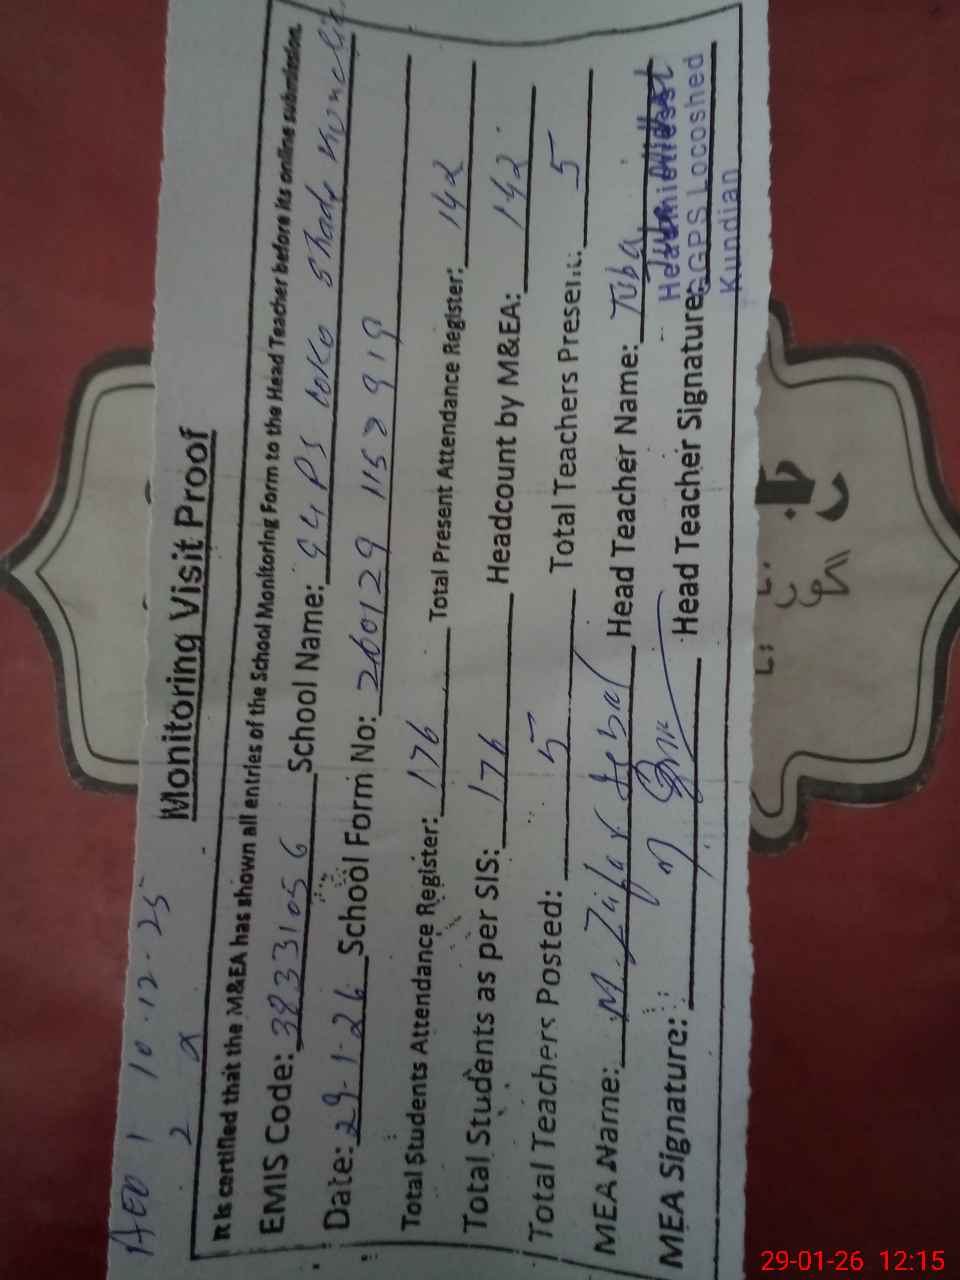 AEO 1 10.12.25
2 x
Monitoring Visit Proof
It is certified that the M&EA has shown all entries of the School Monitoring Form to the Head Teacher before its online submission.
EMIS Code: 38331056 School Name: GGPS Loko Shade Kundia
Date: 29-1-26 School Form No: 260129
Total Students Attendance Register: 176 Total Present Attendance Register: 142
Total Students as per SIS: 176 Headcount by M&EA: 142
Total Teachers Posted: 5 Total Teachers Present: 5
MEA Name: M. Zafar Iqbal Head Teacher Name: Tuba
MEA Signature: Head Teacher Signature:
Headmistress
GGPS Locoshed
Kundian
29-01-26 12:15